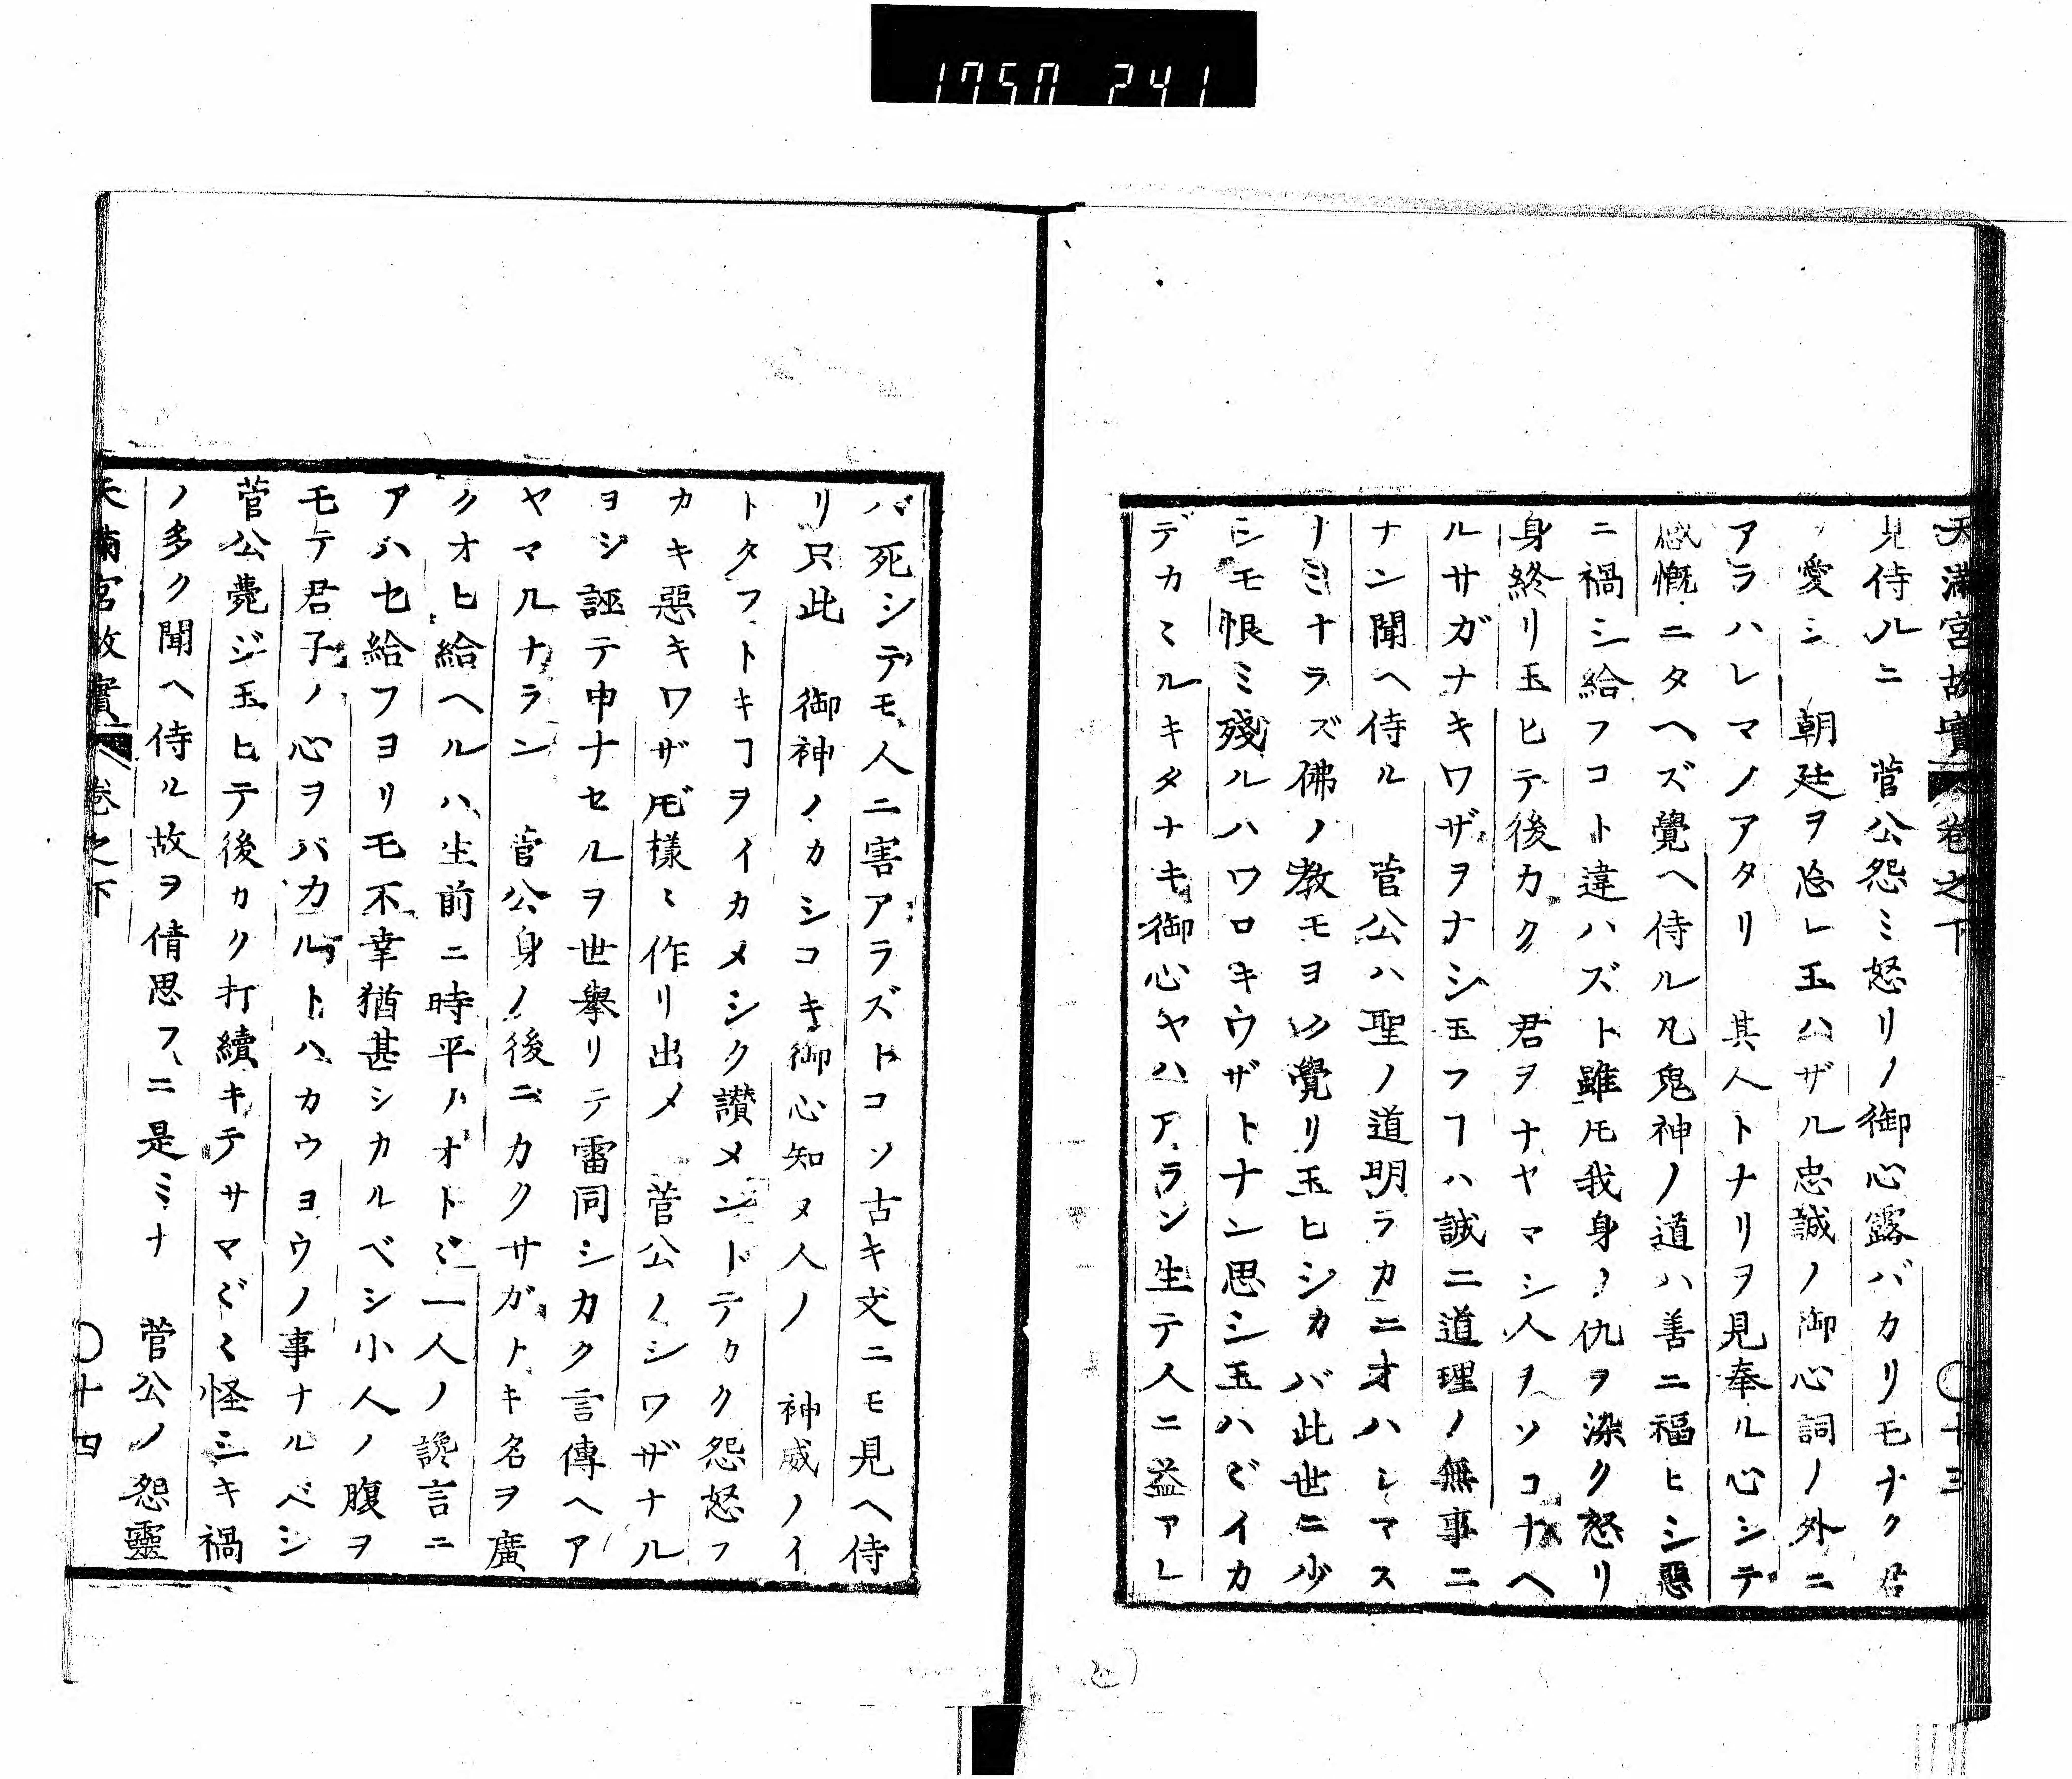 1750 241
天滿宮故實 卷之下 〇十三
見侍ルニ 菅公怨ミ怒リノ御心露バカリモナク君
ヲ愛シ 朝廷ヲ忘レ玉ハザル忠誠ノ御心詞ノ外ニ
アラハレマノアタリ 其人トナリヲ見奉ル心シテ
感慨ニタヘズ覺ヘ侍ル凡鬼神ノ道ハ善ニ福ヒシ惡
ニ禍シ給フコト違ハズト雖𪜈我身ノ仇ヲ深ク怒リ
身終リ玉ヒテ後カク 君ヲナヤマシ人ヲソコナヘ
ルサガナキワザヲナシ玉フヿハ誠ニ道理ノ無事ニ
ナン聞ヘ侍ル 菅公ハ聖ノ道明ラカニオハシマス
ノミナラズ佛ノ教モヨク覺リ玉ヒシカバ此世ニ少
シモ恨ミ殘ルハワロキワザトナン思シ玉ハヾイカ
デカヽルキタナキ御心ヤハアラン生テ人ニ益アレ
バ死シテモ人ニ害アラズトコソ古キ文ニモ見ヘ侍
リ只此 御神ノカシコキ御心知ヌ人ノ 神威ノイ
トタフトキヿヲイカメシク讃メントテカク怨怒フ
カキ惡キワザ𪜈樣〻作リ出メ 菅公ノシワザナル
ヨシ誣テ申ナセルヲ世擧リテ雷同シカク言傳ヘア
ヤマルナラン 菅公身ノ後ニカクサガナキ名ヲ廣
クオヒ給ヘルハ生前ニ時平ノオトヾ一人ノ讒言ニ
アハセ給フヨリモ不幸猶甚シカルベシ小人ノ腹ヲ
モテ君子ノ心ヲバカルトハカウヨウノ事ナルベシ
菅公薨ジ玉ヒテ後カク打續キテサマ〲怪シキ禍
ノ多ク聞ヘ侍ル故ヲ倩思フニ是ミナ 菅公ノ怨靈
天滿宮故實 卷之下 〇十四